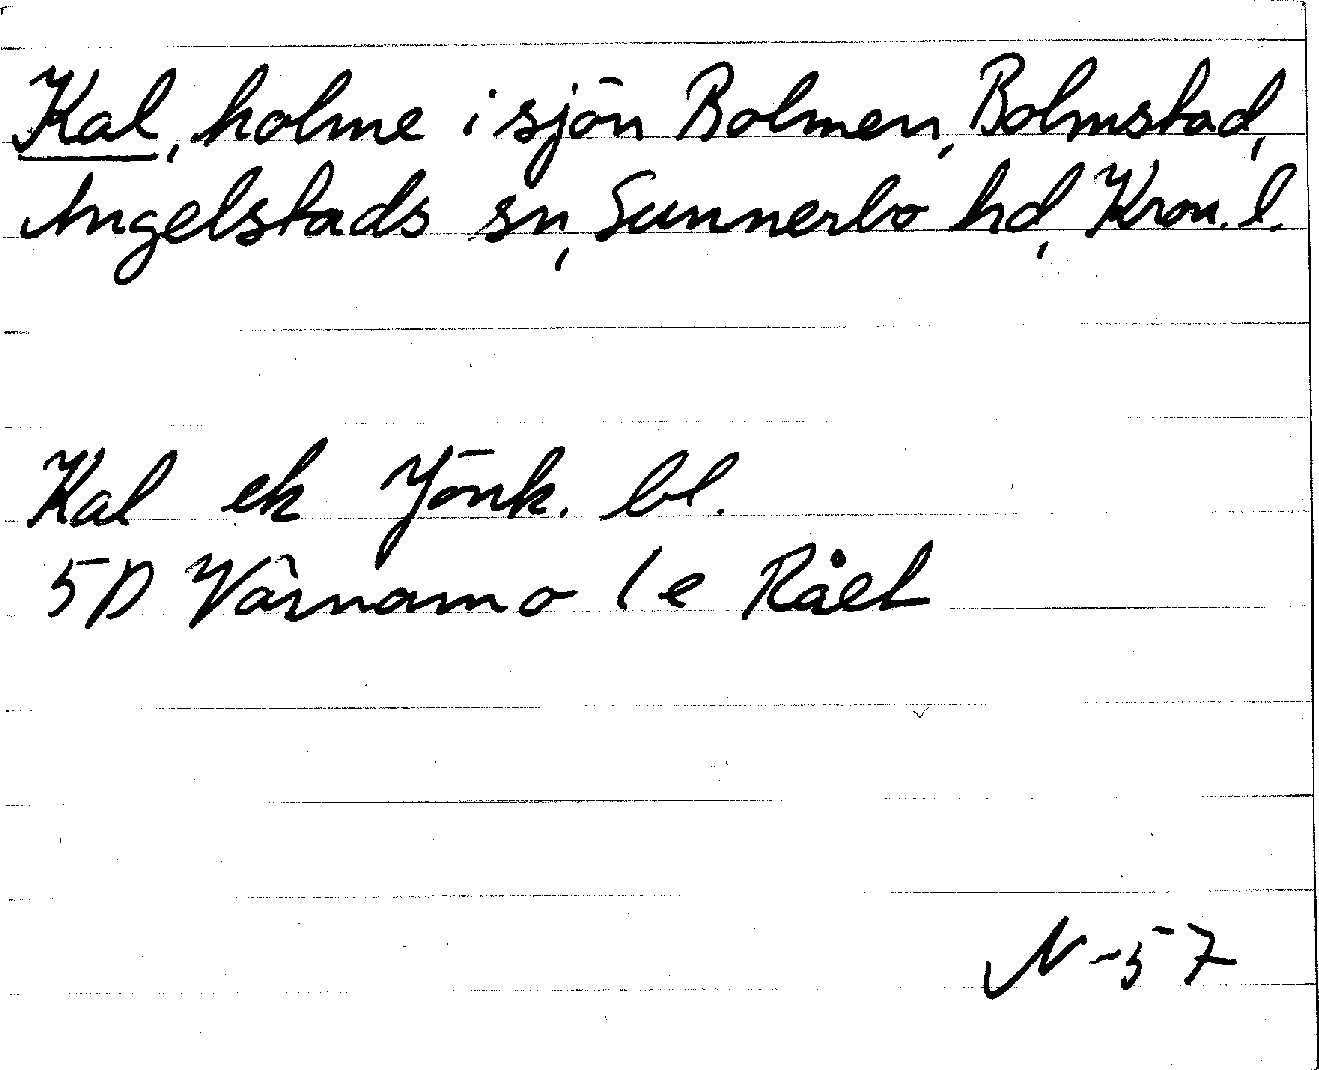 Kal, holme i sjön Bolmen, Bolmstad,
Angelstads sn, Sunnerbo hd, Kron. l.
Kal ek Jönk. bl.
5D Värnamo 1e Råel
N-57